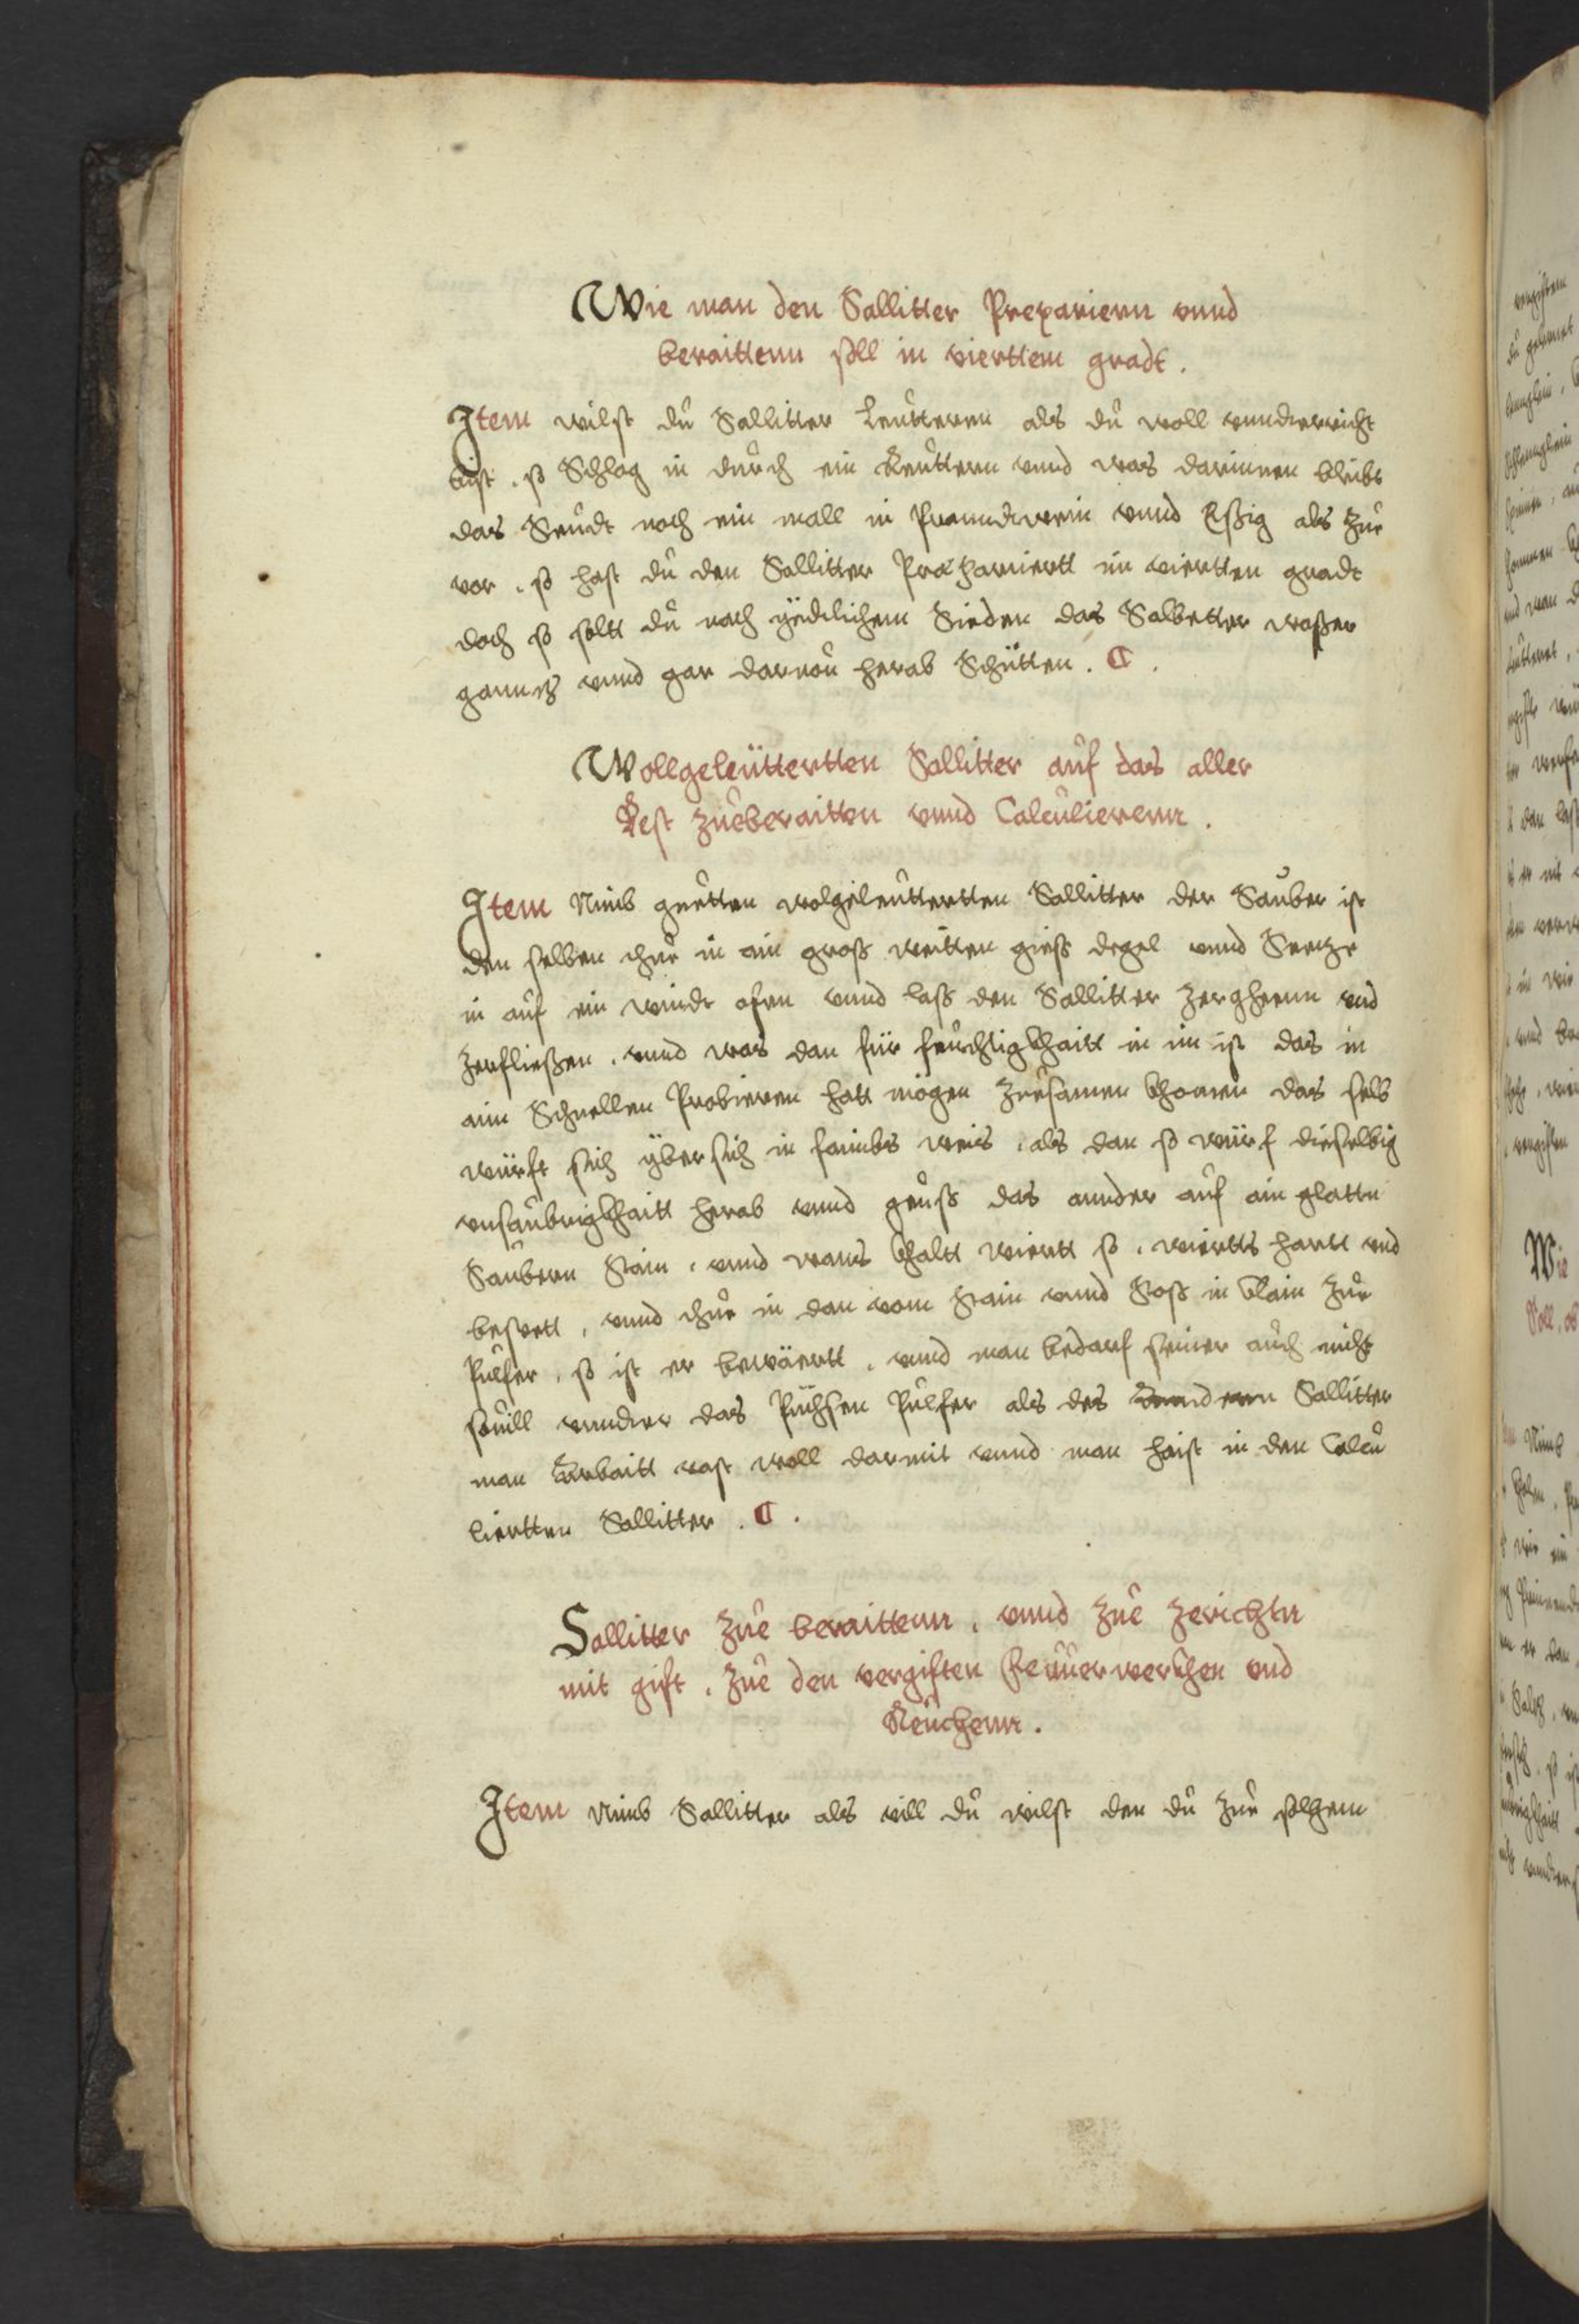 Wie man den Sallitter Preparieren vnnd
beraittenn soll in vierttem gradt.
Item wilst du Sallitter Leutteren als du woll vnnderricht
bist, so Schlag in durch ein Reuttern vnnd was darinnen bleibt
das Seudt noch ein mall in Pranndtwein vnnd Essig als zue
vor, so hast du den Sallitter Præpariertt im viertten gradt
doch so soltt du nach yedlichem Sieden das Salbetter wasser
ganntz vnnd gar daruon herab Schütten. C.
Wollgeleüttertten Sallitter auf das aller
Best zueberaitten vnnd Calculierenn.
Item Nimb guetten wolgeleuttertten Sallitter der Sauber ist
den selben thue in ain gross weitten giess degel vnnd Setze
in auf ein windt ofen vnnd lass den Sallitter zergheenn vnd
zerfliessen, vnnd was dan für feuchtigkhaitt in im ist das in
ain Schnellen Probieren hatt mögen zuesamen khomen das selb
würft sich yber sich in faimbs weis, als dan so würf dieselbig
vnsaubrigkhaitt herab vnnd geuss das annder auf ain glatten
Saubern Stain, vnnd wans khaltt wiertt so, wierts hartt vnd
bestett, vnnd thue in dan vom Stain vnnd Stoss in klain zue
Pulfer, so ist er bewäertt, vnnd man bedarf seiner auch nicht
souill vnnder das Püchsen Pulfer als des anndern Sallitter
man Arbaitt vast woll darmit vnnd man haist in den Calcu
liertten Sallitter. C.
Sallitter zue beraittenn, vnnd zue zerichtn
mit gift, zue den vergiften Feuuerwerkhen vnd
Reuchenn.
Item Nimb Sallitter als vill du wilst den du zue solchem